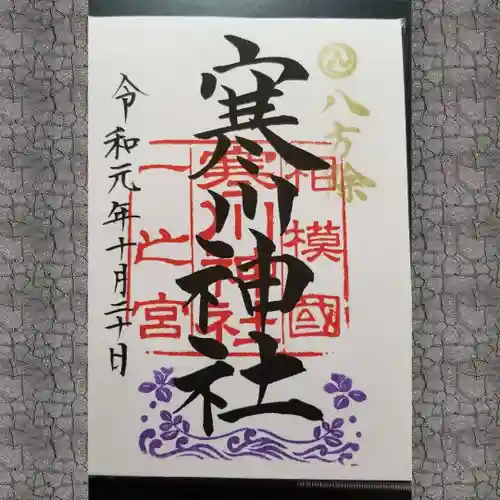 八方除
相模國
寒川神社
一之宮
寒川神社
令和元年十月二十日